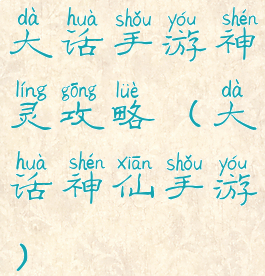 dà huà shǒu yóu shén
大话手游神
líng gōng lüè dà
灵攻略（大
huà shén xiān shǒu yóu
话神仙手游
）